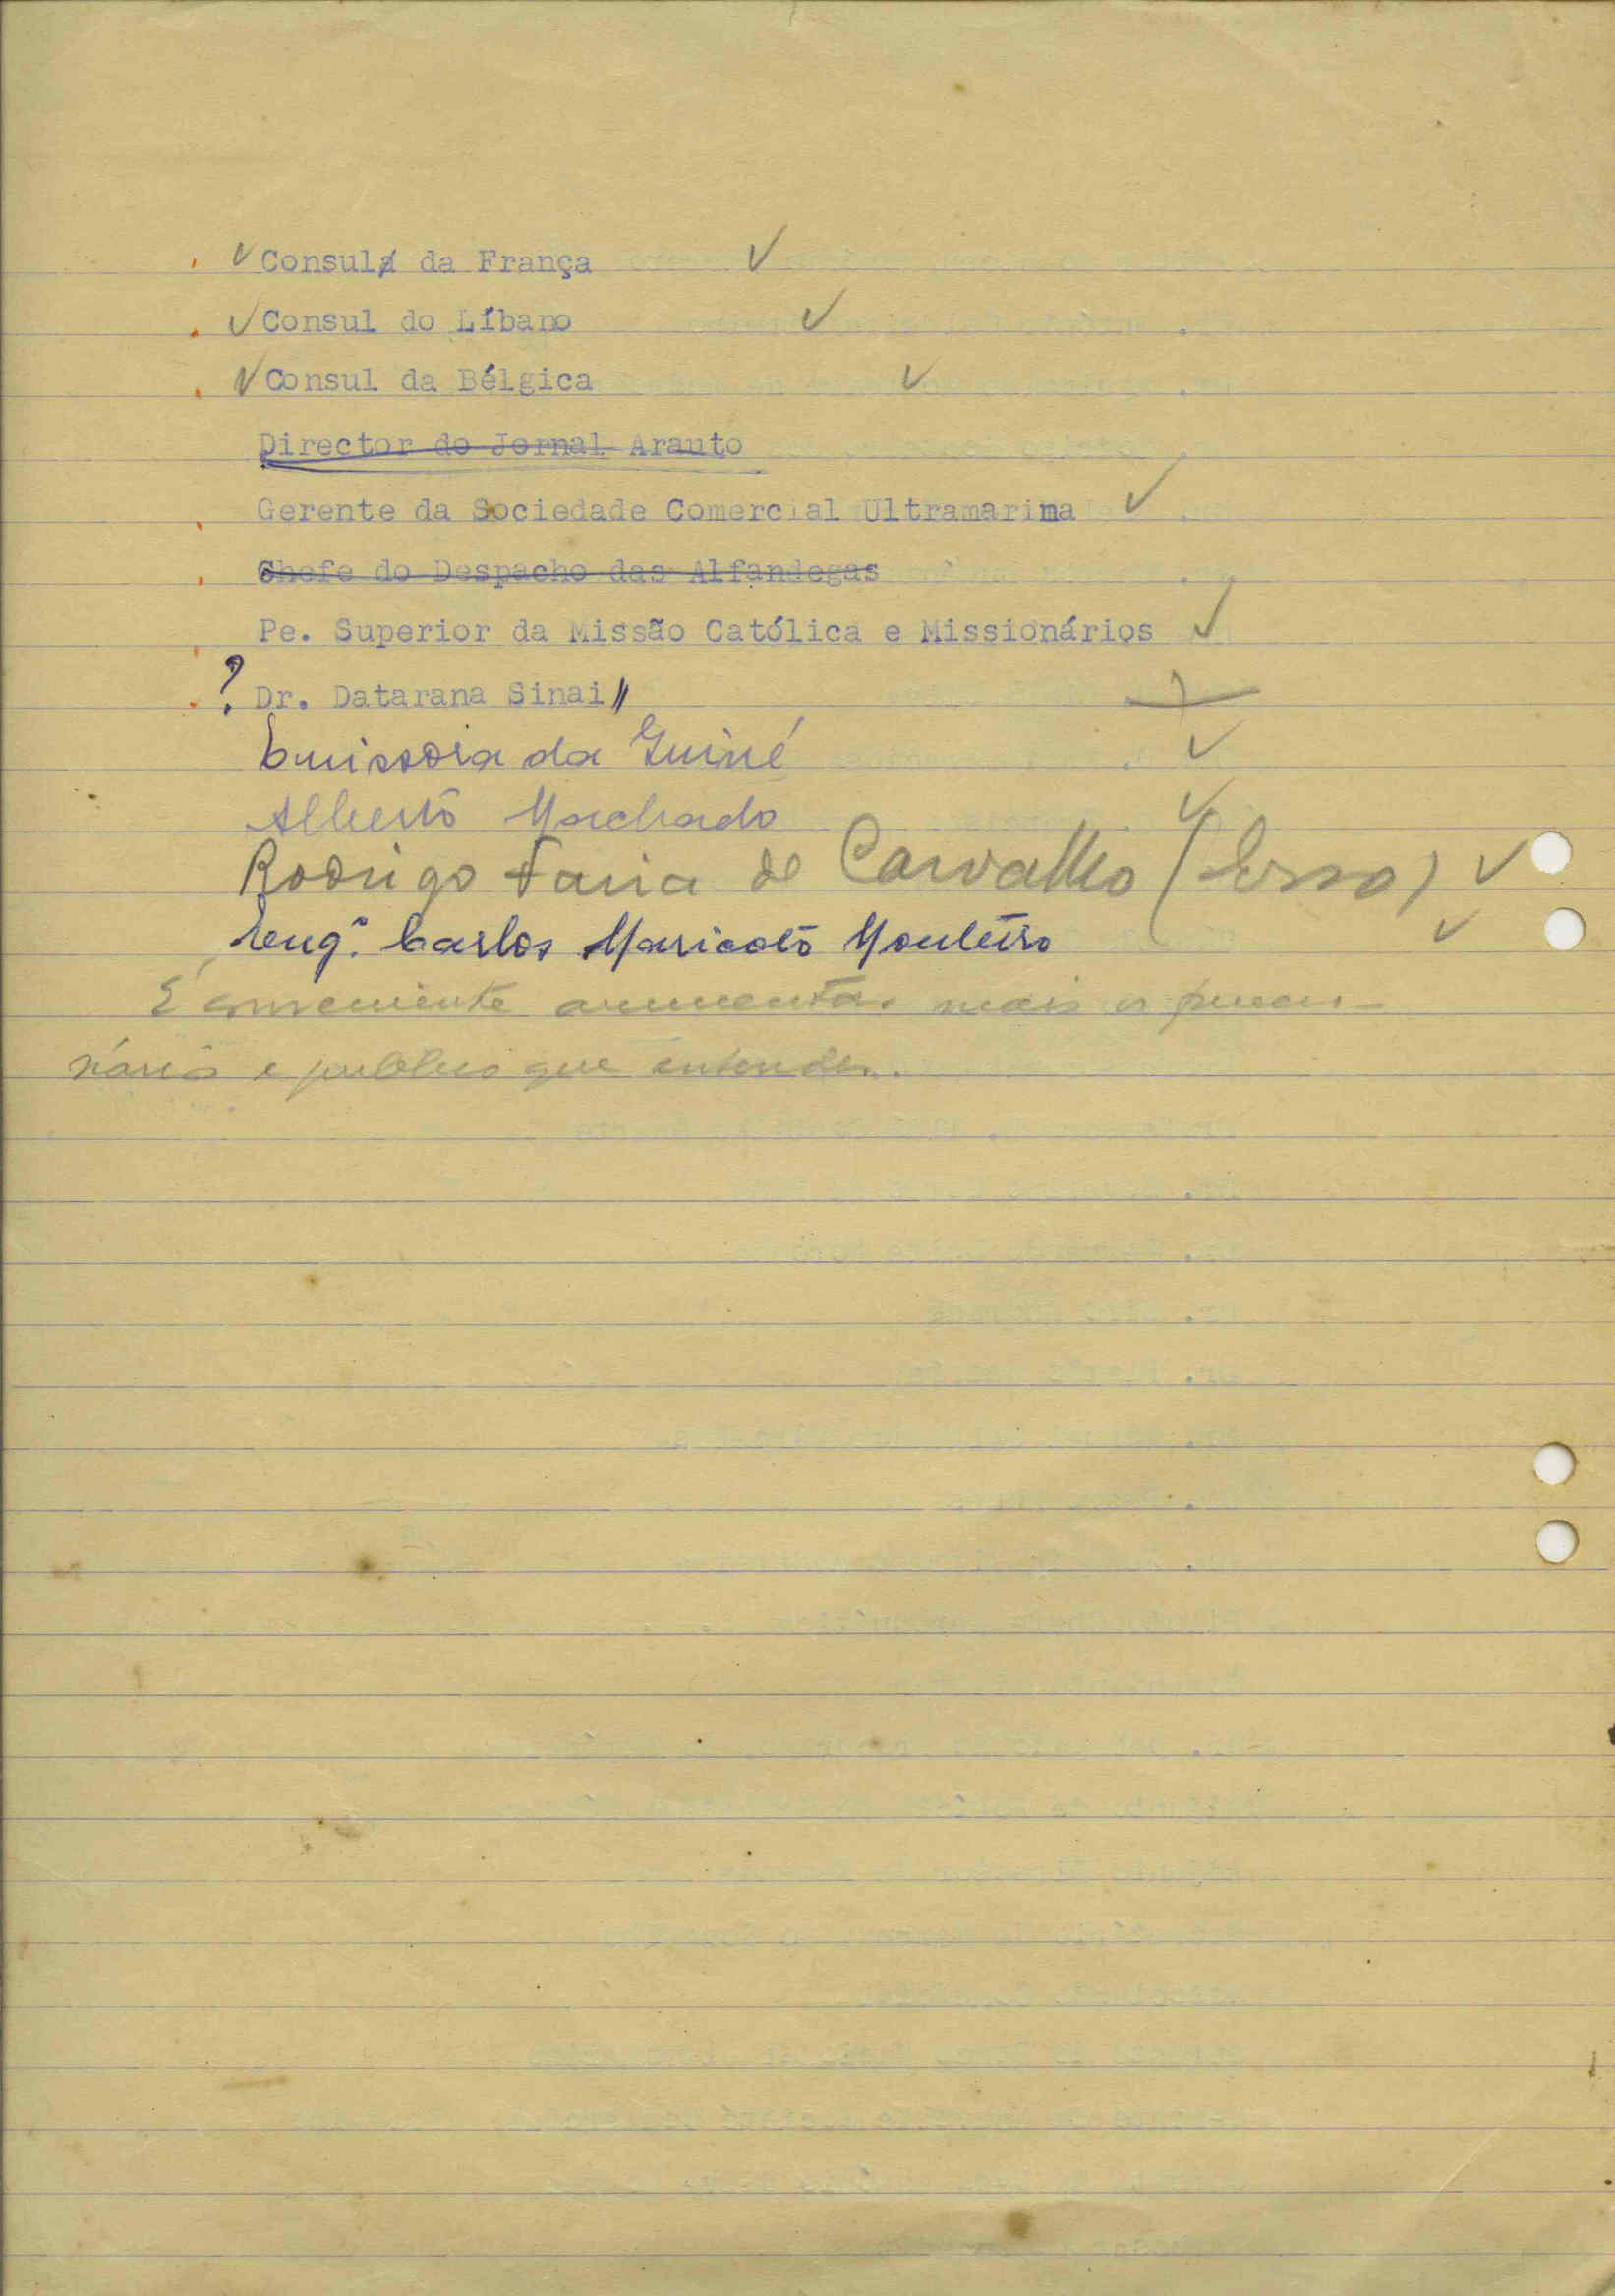 ✓ Consul da França ✓
✓ Consul do Líbano ✓
✓ Consul da Bélgica ✓
Director do Jornal Arauto
Gerente da Sociedade Comercial Ultramarina ✓
Chefe do Despacho das Alfandegas
Pe. Superior da Missão Católica e Missionários ✓
? Dr. Datarana Sinai //
Emissora da Guiné ✓
Alberto Machado ✓
Rodrigo Faria de Carvalho (Esso) ✓
Eng.º Carlos Monteiro ✓
É conveniente mais os
e que entender.